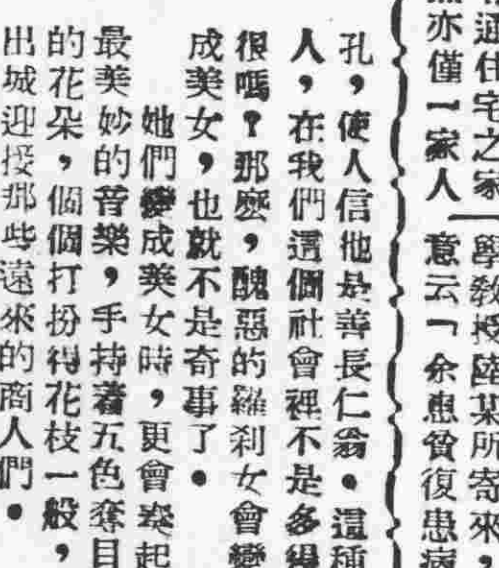 通住宅之家
亦僅一家人
學教授陸某所寄來,
意云「余患貧復患病
孔,使人信他是善長仁翁。這種
人,在我們這個社會裡不是多得
很嗎?那麼,醜惡的羅刹女會變
成美女,也就不是奇事了。
她們變成美女時,更會奏起
最美妙的音樂,手持着五色奪目
的花朵,個個打扮得花枝一般,
出城迎接那些遠來的商人們。